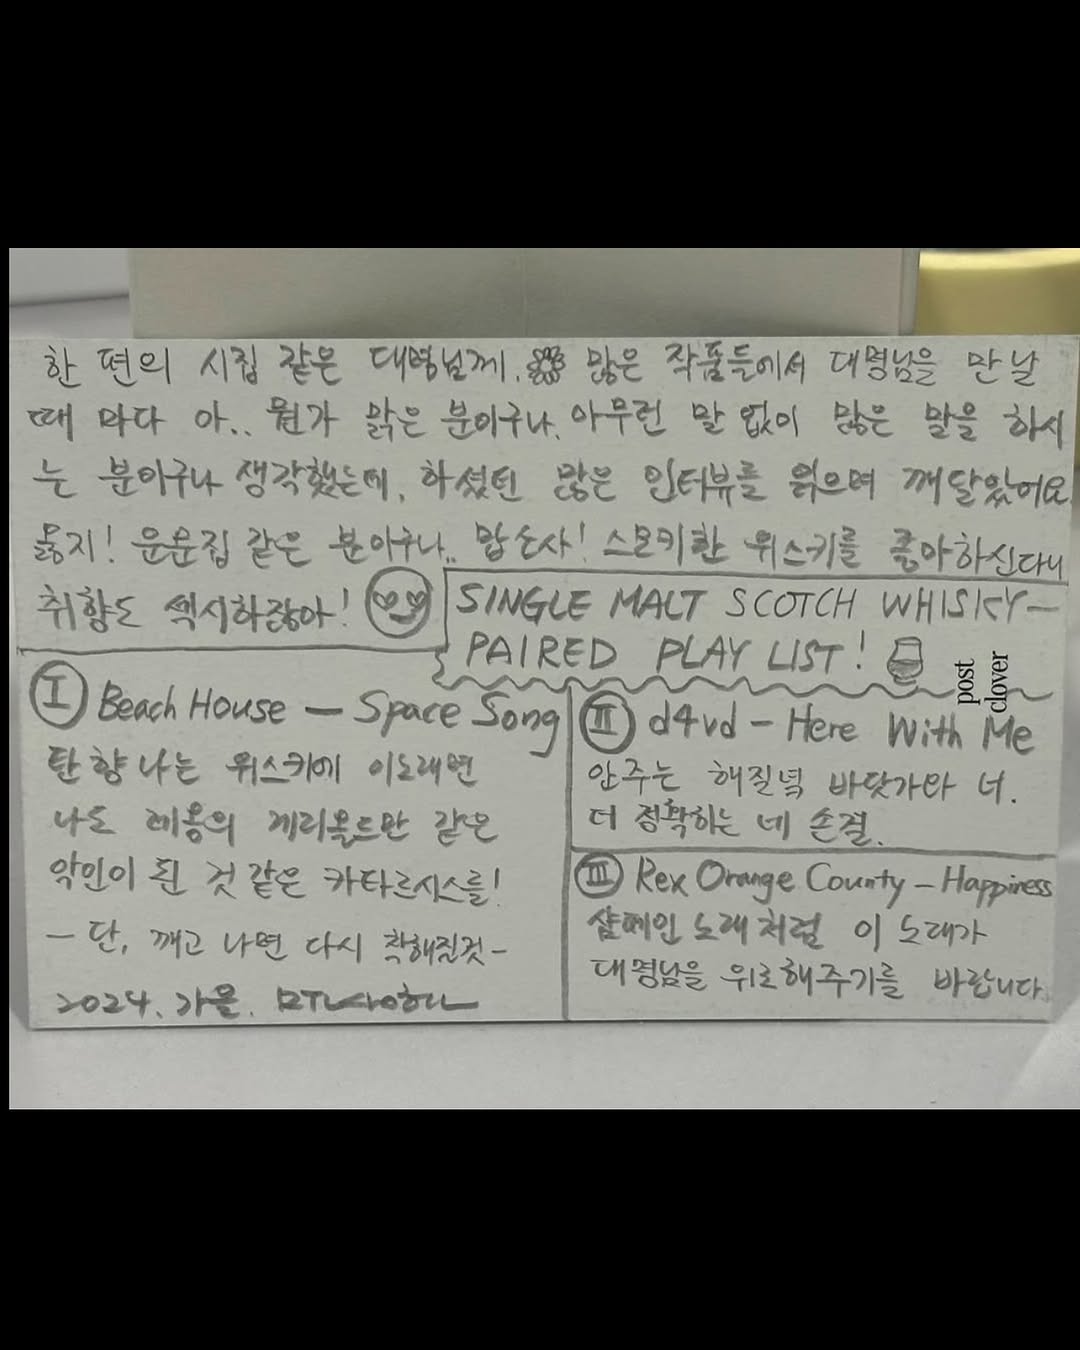 한 편의 시집 같은 대명님께. 많은 작품들에서 대명님을 만날
때 마다 아.. 뭔가 맑은 분이구나. 아무런 말 없이 많은 말을 하시
는 분이구나 생각했는데, 하셨던 많은 인터뷰를 읽으며 깨달았어요
옳지! 운문집 같은 분이구나.. 맙소사! 스모키한 위스키를 좋아하신다니
취향도 섹시하잖아!
SINGLE MALT SCOTCH WHISKY-
PAIRED PLAY LIST!
post
clover
I Beach House - Space Song
탄 향 나는 위스키에 이노래면
나도 레옹의 게리올드만 같은
악인이 된 것 같은 카타르시스를!
- 단, 깨고 나면 다시 착해질것 -
2024. 가을.
II d4vd - Here With Me
안주는 해질녘 바닷가와 너.
더 정확하는 네 손결.
III Rex Orange County - Happiness
샴페인 노래처럼 이 노래가
대명님을 위로해주기를 바랍니다